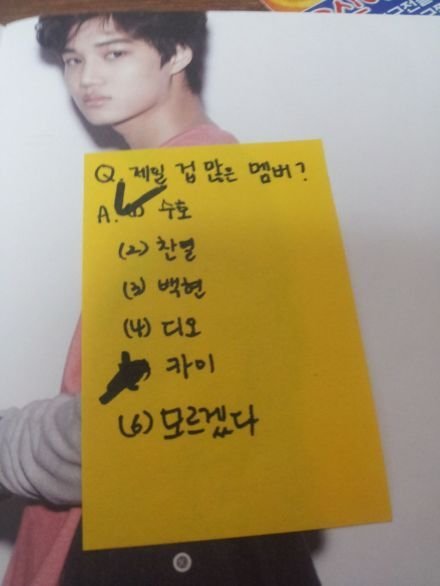 Q. 제일 겁 많은 멤버?
A. (1) 수호
(2) 찬열
(3) 백현
(4) 디오
카이
(6) 모르겠다